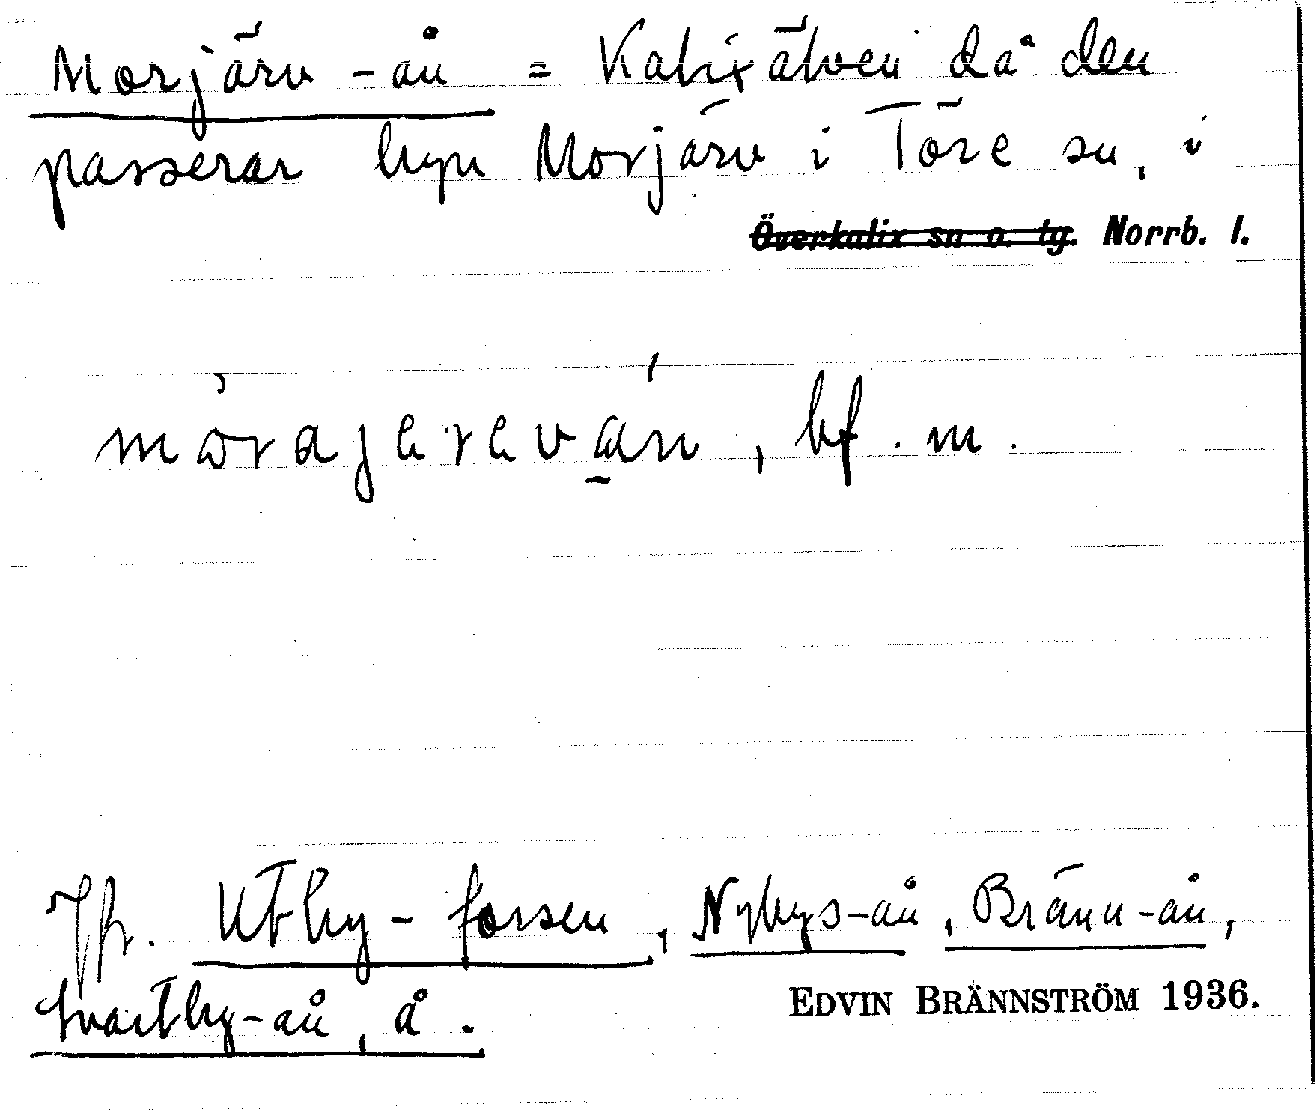 Morjärv-ån = Kalixälven då den
passerar byn Morjärv i Töre sn. i
Överkalix sn o. tg. Norrb. l.
mòrajerevá̱n, bf. m.
Jfr. Utby-forsen, Nybys-ån, Bränn-ån,
Svartby-ån, å.
EDVIN BRÄNNSTRÖM 1936.